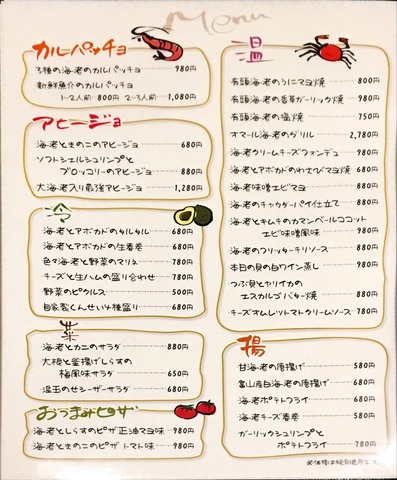 Menu
カルパッチョ
3種の海老のカルパッチョ 980円
新鮮魚介のカルパッチョ
1~2人前 800円 2~3人前 1,080円
アヒージョ
海老ときのこのアヒージョ 680円
ソフトシェルシュリンプと
ブロッコリーのアヒージョ 880円
大海老入り最強アヒージョ 1,280円
冷
海老とアボカドのタルタル 680円
海老とアボカドの生春巻 680円
色々海老と野菜のマリネ 780円
チーズと生ハムの盛り合わせ 780円
野菜のピクルス 500円
自家製くんせい4種盛り 680円
菜
海老とカニのサラダ 880円
大根と釜揚げしらすの
梅風味サラダ 650円
温玉のせシーザーサラダ 680円
おつまみピザ
海老としらすのピザ 正油マヨ味 980円
海老ときのこのピザ トマト味 980円
温
有頭海老のうにマヨ焼 800円
有頭海老の香草ガーリック焼 980円
有頭海老の塩焼 750円
オマール海老のグリル 2,780円
海老クリームチーズフォンデュ 980円
海老とアボカドのわさびマヨ焼 780円
海老味噌エビマヨ 880円
海老のチャウダーパイ仕立て 880円
海老とキムチのカマンベールココット
エビ味噌風味 980円
海老のフリッターチリソース 880円
本日の貝の白ワイン蒸し 980円
つぶ貝とヤリイカの
エスカルゴバター焼 880円
チーズオムレットマトクリームソース 780円
揚
甘海老の唐揚げ 580円
富山産白海老の唐揚げ 680円
海老ポテトフライ 680円
海老チーズ春巻 580円
ガーリックシュリンプと
ポテトフライ 780円